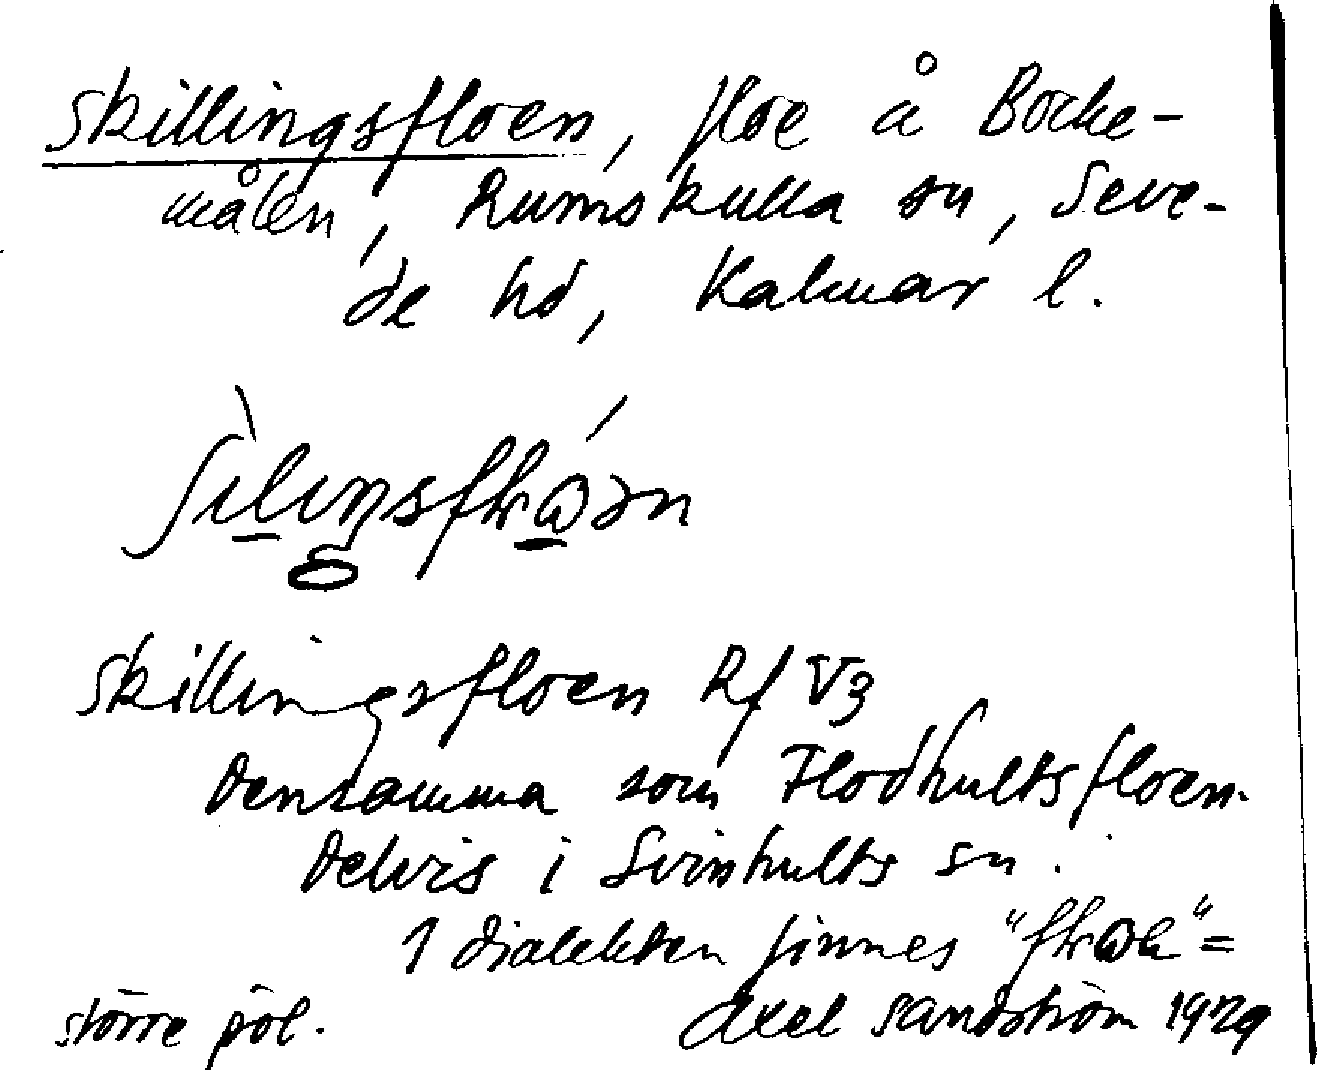 Skillingsfloen, floe å Bocke-
målen, Rumskulla sn, Seve-
de hd, Kalmar l.
Skillingsfloen Rf V3
Densamma som Flodhultsfloen.
Delvis i Svinhults sn.
I dialekten finnes
större pöl. Axel Sandström 1929